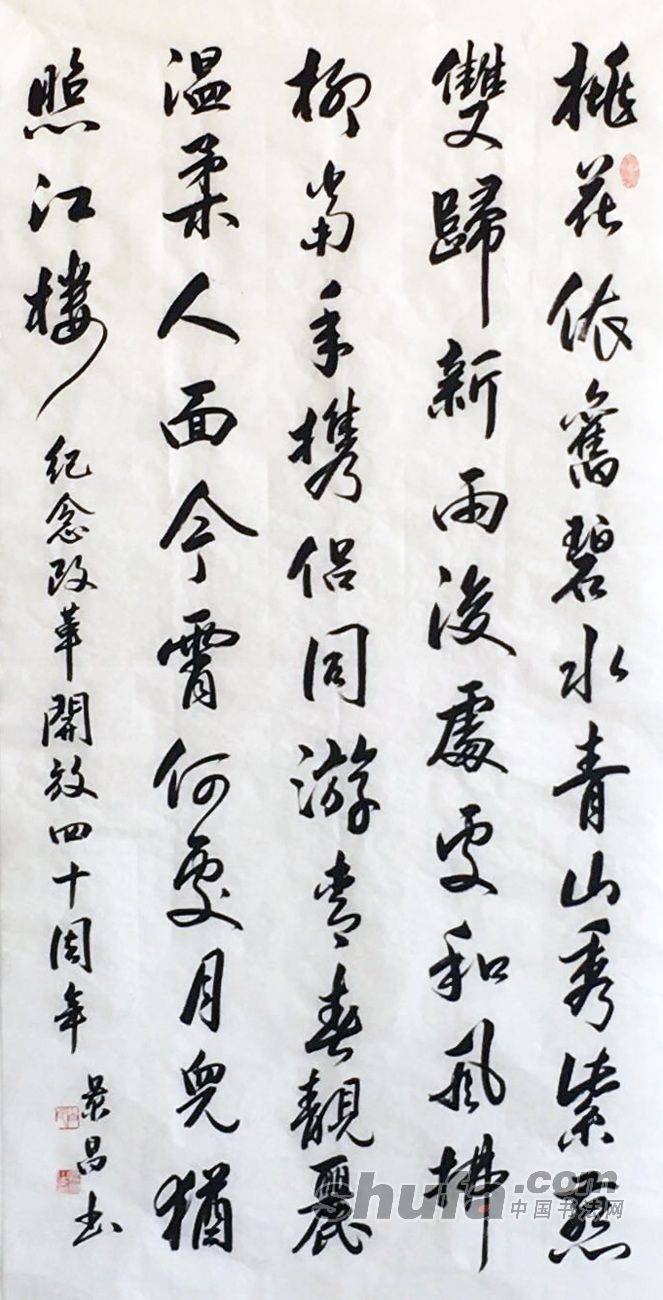 桃花依舊碧水青山秀紫燕
雙歸新雨後處處和風拂
柳當年携侣同游青春靚麗
温柔人面今宵何處月兒猶
照江樓
紀念改革開放四十周年
景昌書
shufa.com
中国书法网